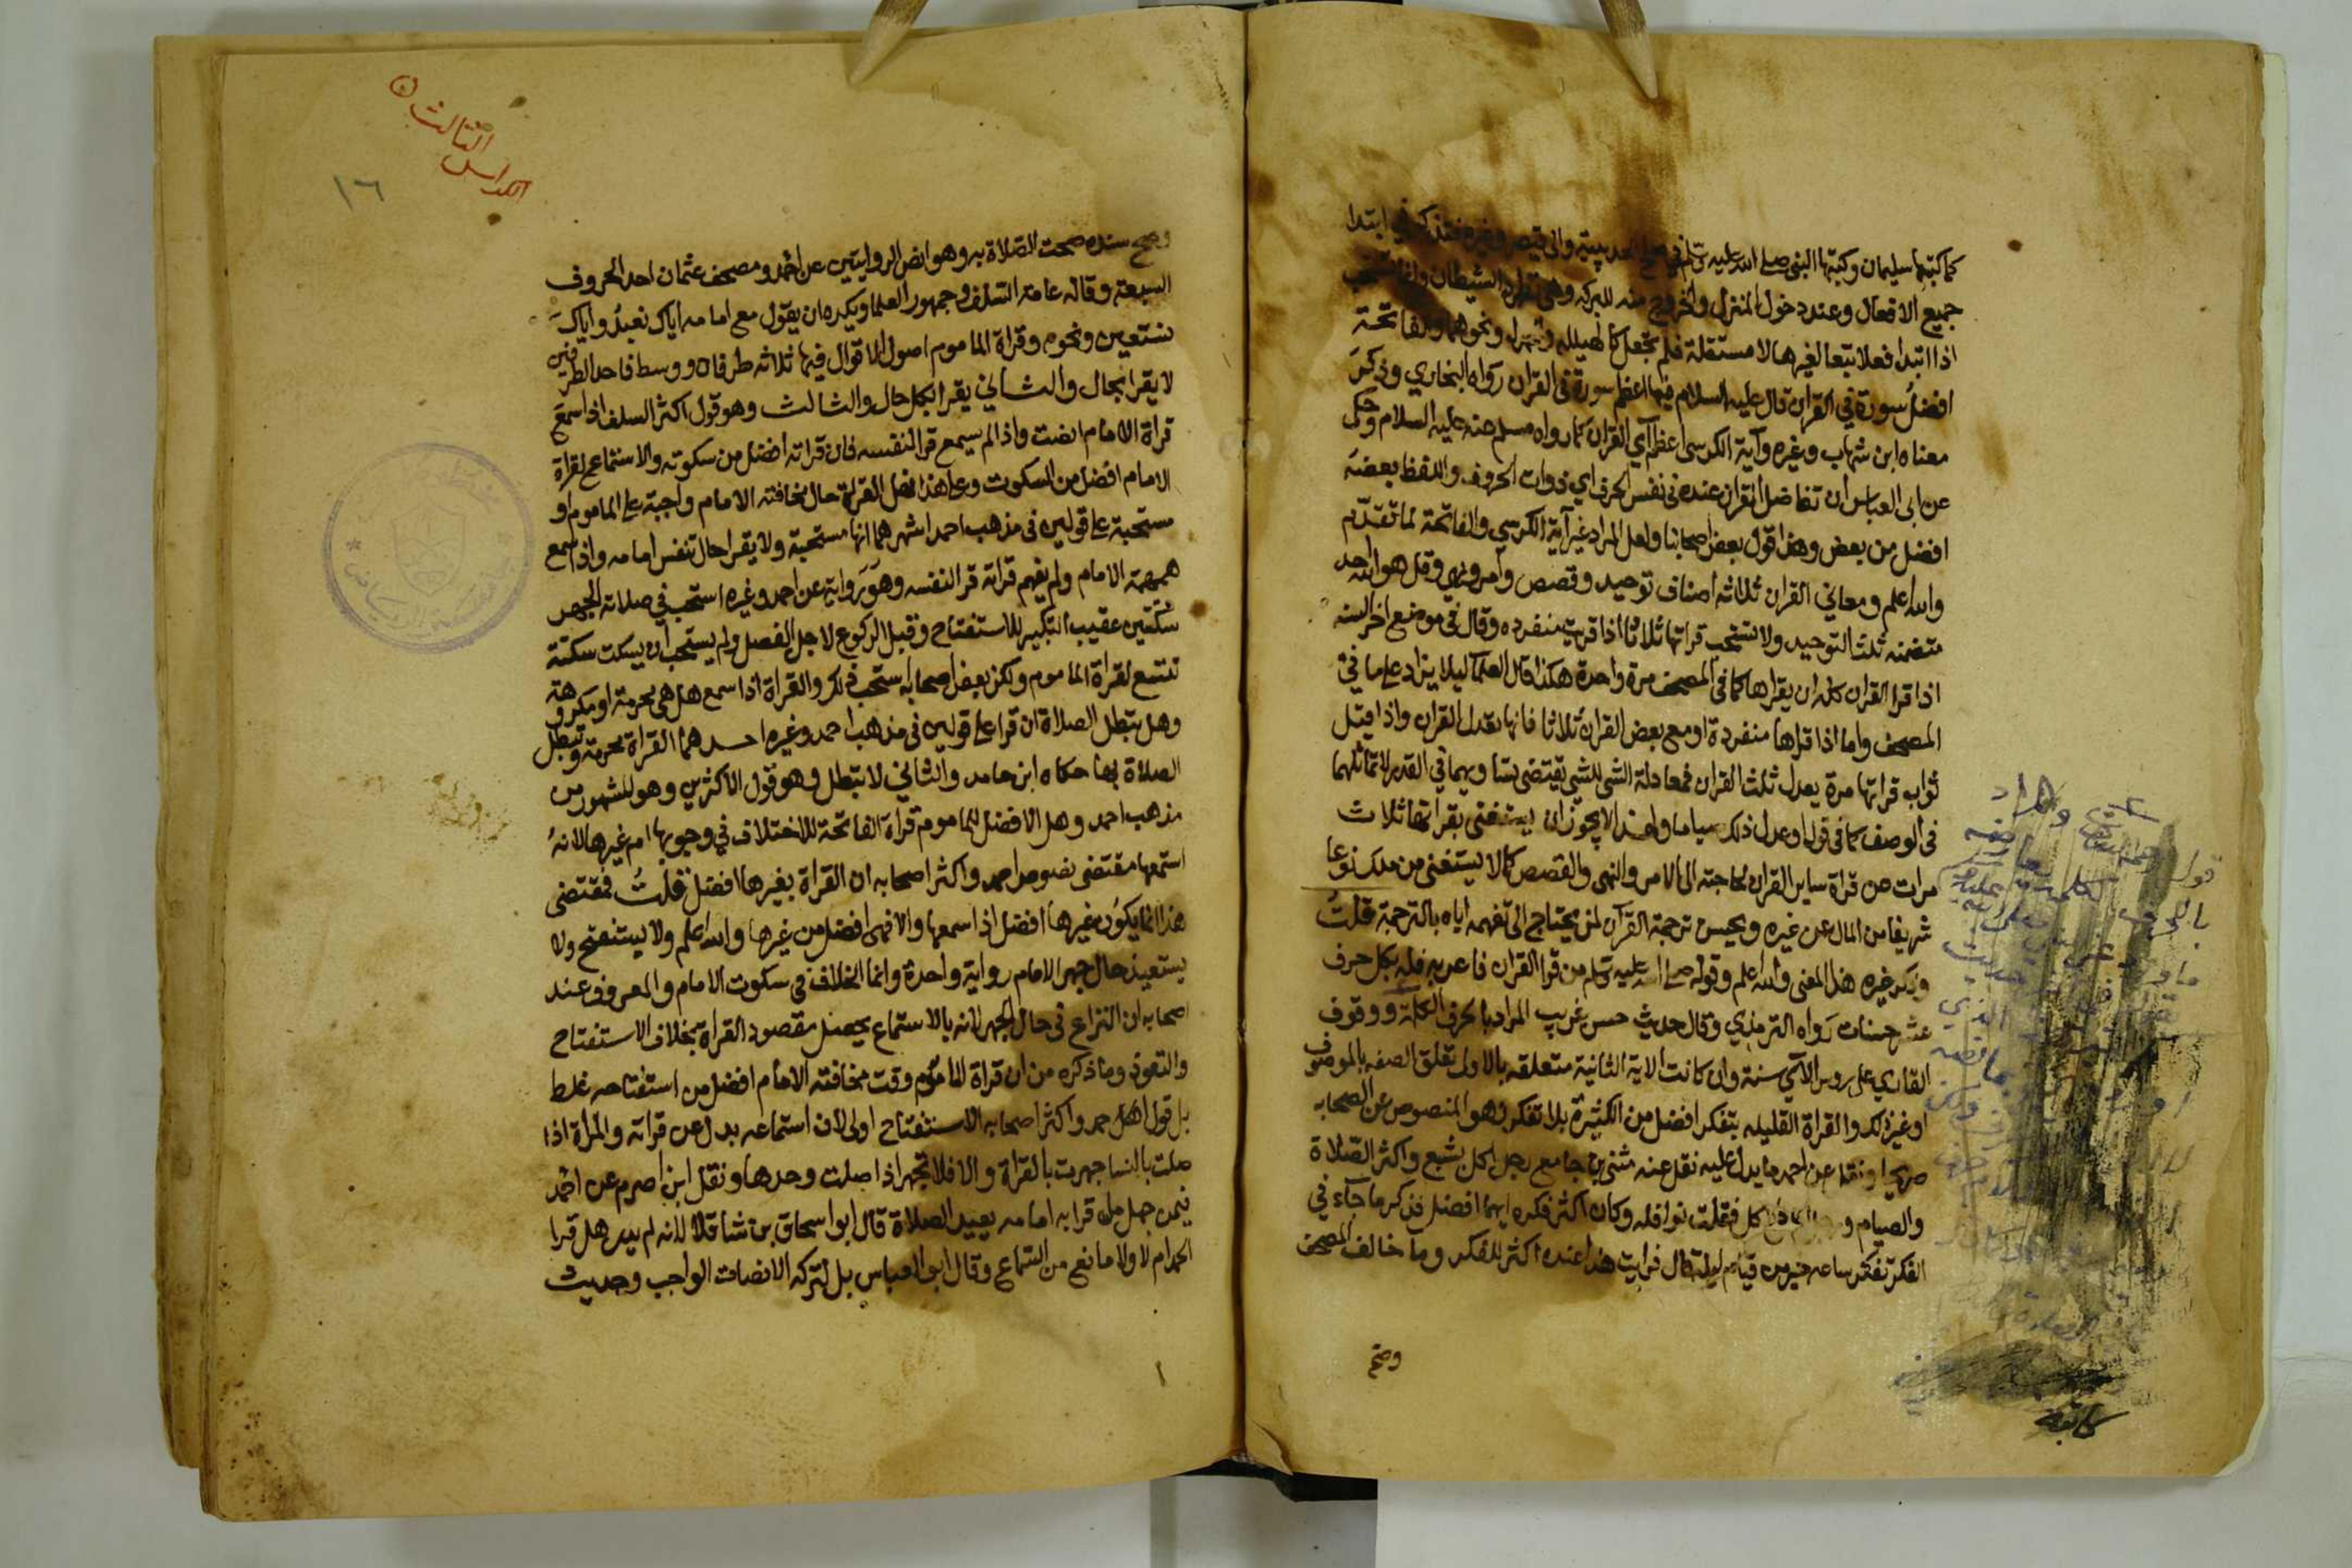 كما كتبها سليمان وكتبها النبي صلى الله عليه وسلم في صلح الحديبية والى قيصر وغيره فتذكر في ابتدا
جميع الافعال وعند دخول المنزل والخروج منه للبركه وهي تطرد الشيطان وانما تستحب
اذا ابتدا فعلا تبعا لغيرها لا مستقلة فلم تجعل كالهيلله والحمدله ونحوهما والفاتحة
افضل سورة في القران قال عليه السلام فيها اعظم سورة في القران رواه البخاري وذكر
معناه ابن شهاب وغيره وآية الكرسي اعظم آي القران كما رواه مسلم عنه عليه السلام وحكى
عن ابى العباس ان تفاضل القران عنده في نفس الحرف اي ذوات الحروف واللفظ بعضه
افضل من بعض وهذا قول بعض اصحابنا ولعل المراد غير آية الكرسي والفاتحة لما تقدم
والله اعلم ومعاني القران ثلاثه اصناف توحيد وقصص وامر ونهي وقل هو الله احد
متضمنه ثلث التوحيد ولا تستحب قراتها ثلاثا الا اذا قريت منفرده وقال في موضع اخر السنه
اذا قرا القران كله ان يقراها كما في المصحف مرة واحدة هكذا قال العلما ليلا يزاد على ما في
المصحف واما اذا قراها منفردة او مع بعض القران ثلاثا فانها تعدل القران واذا قيل
ثواب قراتها مرة يعدل ثلث القران فمعادلة الشي للشي يقتضى تساويهما في القدر لا تماثلهما
في الوصف كما في قوله او عدل ذلك صياما ولهذا لا يجوز ان يستغنى بقراتها ثلاث
مرات عن قراة ساير القران لحاجته الى الامر والنهي والقصص كما لا يستغنى من ملك نوعا
شريفا من المال عن غيره ويحسن ترجمة القرآن لمن يحتاج الى تفهمه اياه بالترجمة قلت
وذكر غيره هذا المعنى والله اعلم وقوله صلى الله عليه وسلم من قرا القران فاعربه فله بكل حرف
عشر حسنات رواه الترمذي وقال حديث حسن غريب المراد بالحرف الكلمة ووقوف
القاري على روس الآي سنة وان كانت الاية الثانية متعلقه بالاولى تعلق الصفه بالموصوف
او غير ذلك والقراة القليله بتفكر افضل من الكثيرة بلا تفكر وهو المنصوص عن الصحابه
صريحا ونقل عن احمد ما يدل عليه نقل عنه مثنى بن جامع رجل اكل يشبع واكثر الصلاة
والصيام و كل فقلت نوافله وكان اكثر فكره ايهما افضل فذكر ما جآء في
الفكر تفكر ساعه خير من قيام ليلة قال فرايت هذا عنده اكثر للفكر وما خالف المصحف
وصح
كاتبه
الكراس الثالث
١٦
وصح سنده صحت الصلاة به وهو انص الروايتين عن احمد ومصحف عثمان احد الحروف
السبعة وقاله عامة السلف وجمهور العلما ويكره ان يقول مع امامه اياك نعبد واياك
نستعين ونحوه وقراة الماموم اصول الاقوال فيها ثلاثه طرفان ووسط فاحد الطرفين
لا يقرا بحال والثاني يقرا بكل حال والثالث وهو قول اكثر السلف اذا سمع
قراة الامام انصت واذا لم يسمع قرا لنفسه فان قراته افضل من سكوته والاستماع لقراة
الامام افضل من السكوت وعلى هذا فهل القراة حال مخافتة الامام واجبة على الماموم او
مستحبة على قولين في مذهب احمد اشهرهما انها مستحبة ولا يقرا حال تنفس امامه واذا سمع
همهمة الامام ولم يفهم قراته قرا لنفسه وهو رواية عن احمد وغيره استحب في صلاة الجهر
سكتتين عقيب التكبير للاستفتاح وقبل الركوع لاجل الفصل ولم يستحب ان يسكت سكتة
تتسع لقراة الماموم ولكن بعض اصحابه استحب ذلك والقراة اذا سمع هل هي محرمة او مكروهة
وهل تبطل الصلاة ان قرا على قولين في مذهب احمد وغيره احدهما القراة محرمة وتبطل
الصلاة بها حكاه ابن حامد والثاني لا تبطل وهو قول الاكثرين وهو المشهور من
مذهب احمد وهل الافضل للماموم قراة الفاتحة للاختلاف في وجوبها ام غيرها لانه
استمعها مقتضى نصوص احمد واكثر اصحابه ان القراة بغيرها افضل قلت فمقتضى
هذا انما يكون غيرها افضل اذا سمعها والا فهي افضل من غيرها والله اعلم ولا يستفتح ولا
يستعيذ حال جهر الامام رواية واحدة وانما الخلاف في سكوت الامام والمعروف عند
اصحابه ان النزاع في حال الجهر لانه بالاستماع يحصل مقصود القراة بخلاف الاستفتاح
والتعوذ وما ذكره من ان قراة الماموم وقت مخافتة الامام افضل من استفتاحه غلط
بل قول احمد واكثر اصحابه الاستفتاح اولى لان استماعه بدل عن قراته والمراة اذا
صلت بالنسا جهرت بالقراة والا فلا تجهر اذا صلت وحدها ونقل ابن اصرم عن احمد
فيمن جهل ما قرا به امامه يعيد الصلاة قال ابو اسحاق بن شاقلا لانه لم يدر هل قرا
الحمد ام لا ولا مانع من السماع وقال ابو العباس بل لتركه الانصات الواجب وحديث